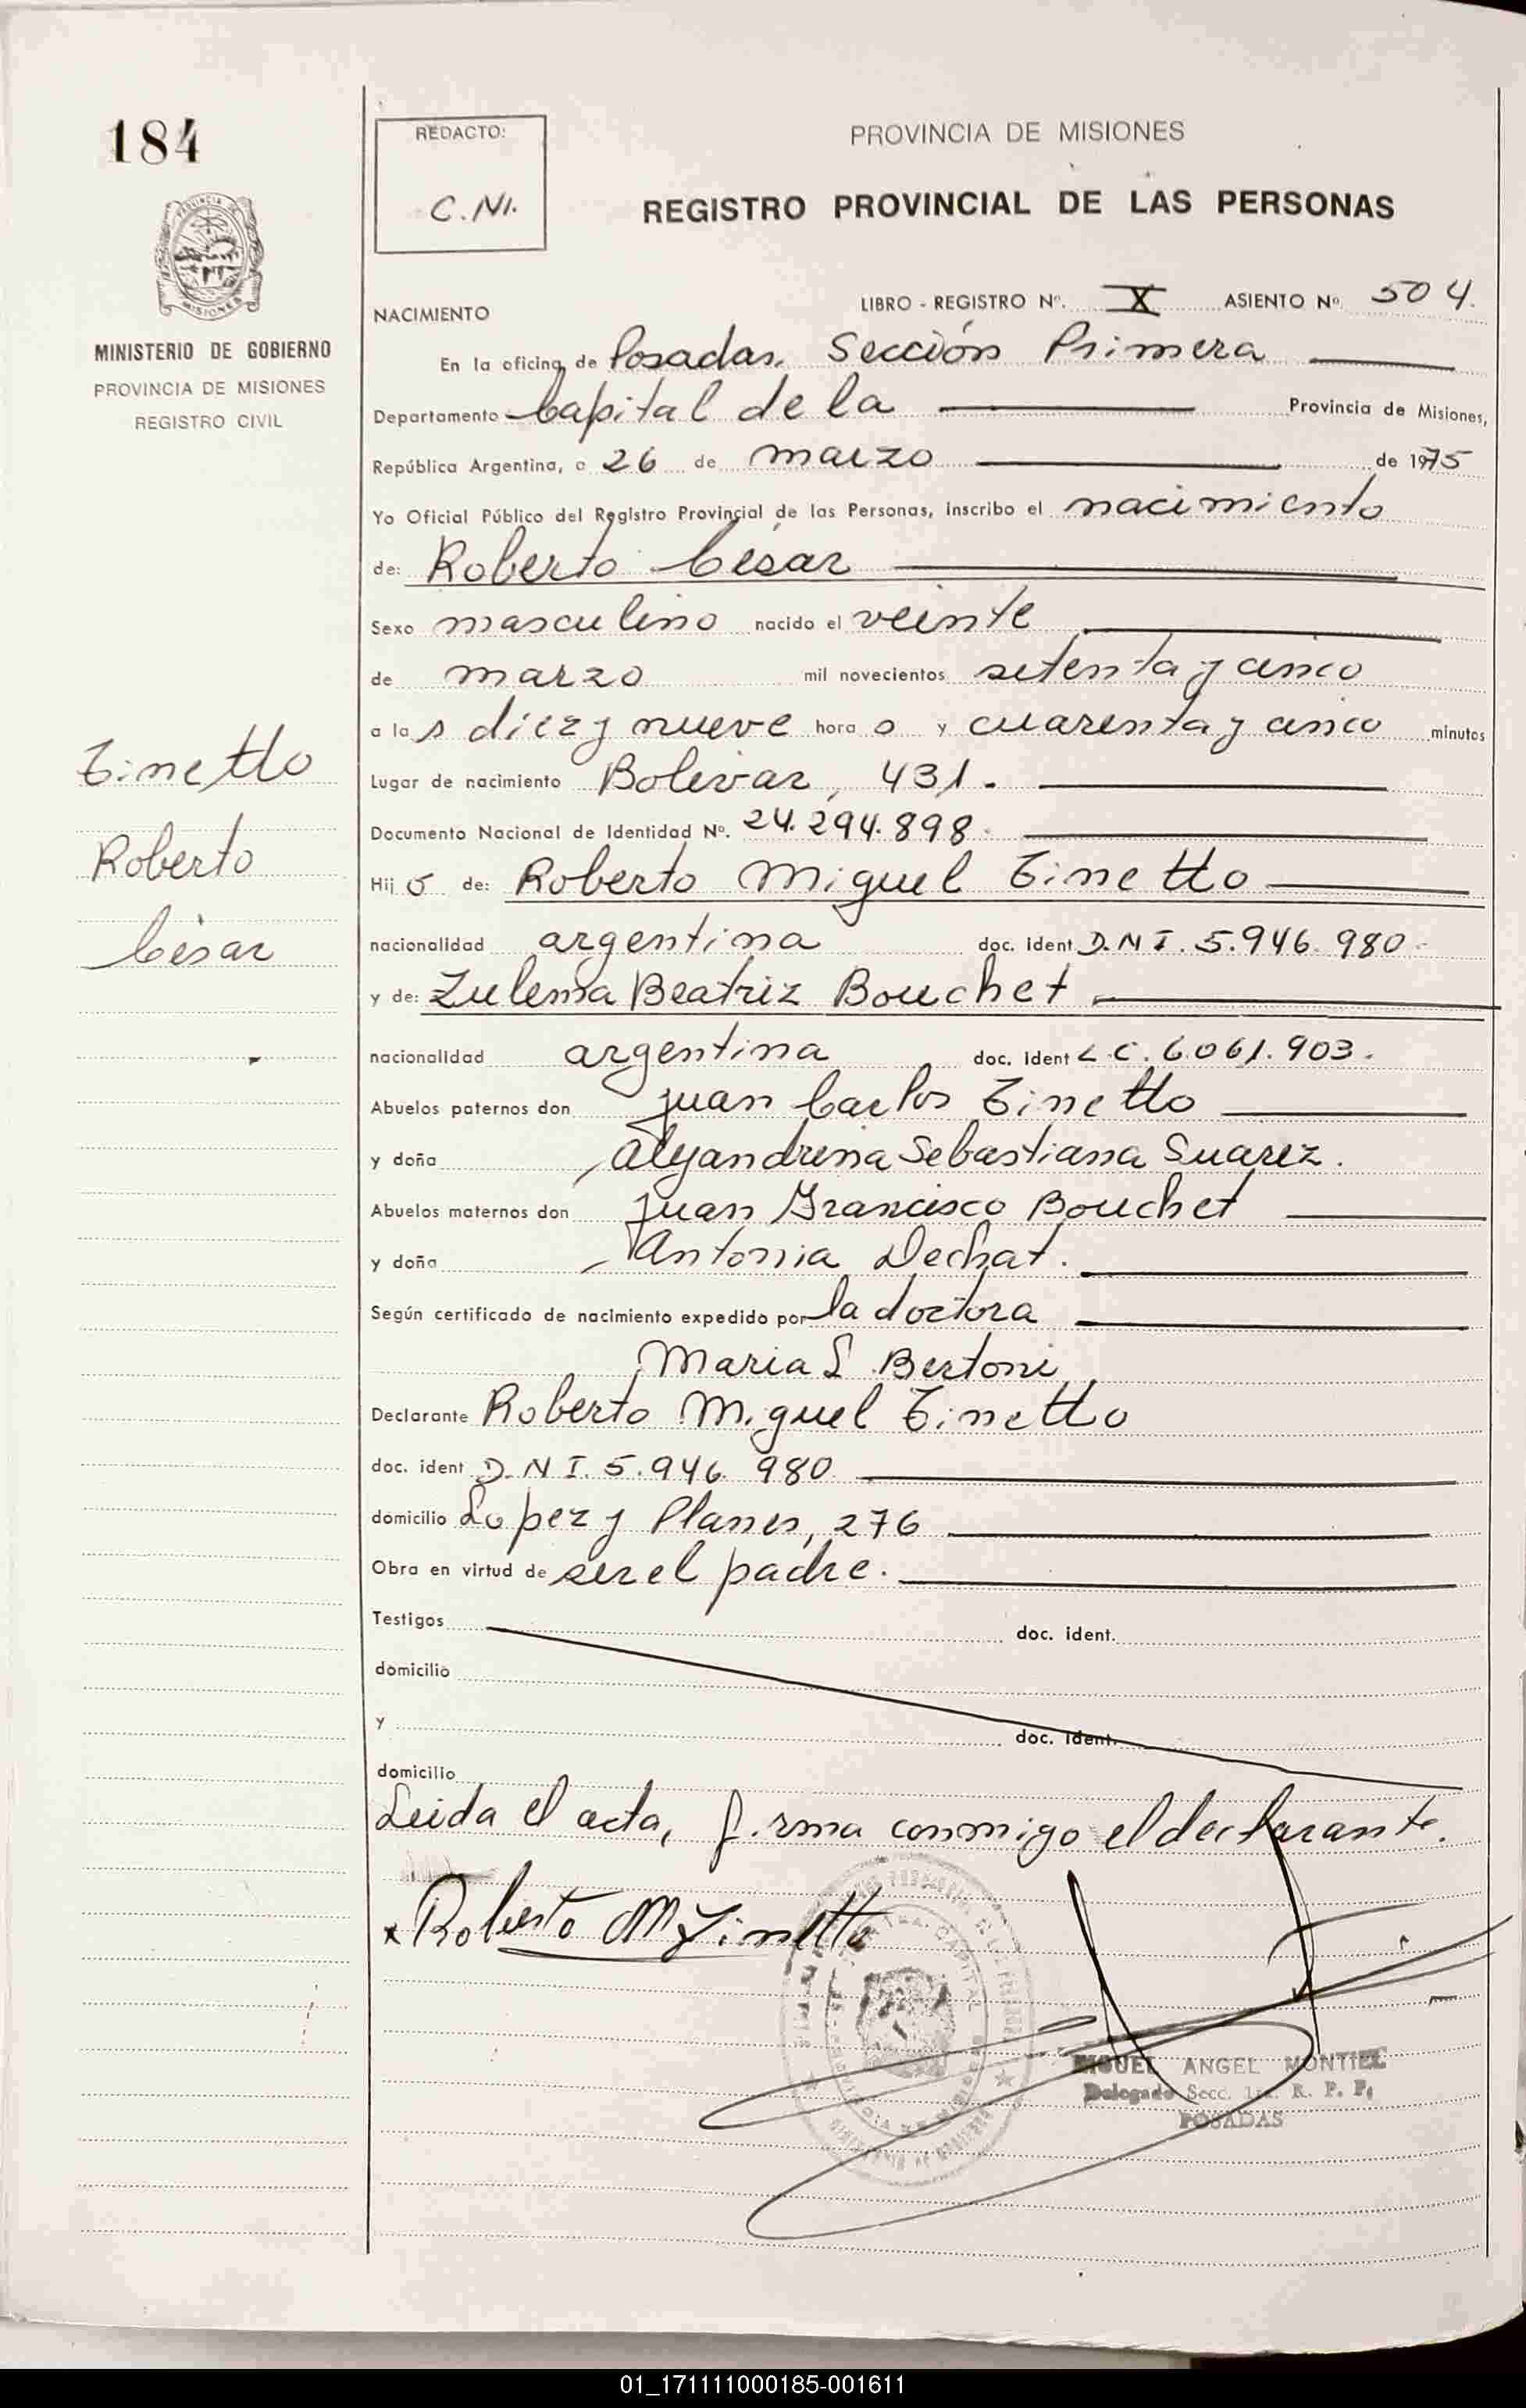 184
REDACTO:
C.M.
PROVINCIA DE MISIONES
REGISTRO PROVINCIAL DE LAS PERSONAS
MINISTERIO DE GOBIERNO
PROVINCIA DE MISIONES
REGISTRO CIVIL
NACIMIENTO LIBRO - REGISTRO Nº. X ASIENTO Nº 504.
En la oficina de Posadas. Sección Primera
Departamento Capital de la Provincia de Misiones,
República Argentina, a 26 de marzo de 1975
Yo Oficial Público del Registro Provincial de las Personas, inscribo el nacimiento
de: Roberto César
Sexo masculino nacido el veinte
de marzo mil novecientos setenta y cinco
a las diez y nueve hora s y cuarenta y cinco minutos
Lugar de nacimiento Bolivar, 431.
Documento Nacional de Identidad Nº. 24.294.898.
Hijo de: Roberto Miguel Tinetto
nacionalidad argentina doc. ident D.N.I. 5.946.980.
y de: Zulema Beatriz Bouchet
nacionalidad argentina doc. ident L.C. 6.061.903.
Abuelos paternos don Juan Carlos Tinetto
y doña Alejandrina Sebastiana Suarez.
Abuelos maternos don Juan Francisco Bouchet
y doña Antonia Dechat.
Según certificado de nacimiento expedido por la doctora
Maria L. Bertoni
Declarante Roberto Miguel Tinetto
doc. ident D.N.I. 5.946.980
domicilio Lopez y Planes, 276
Obra en virtud de ser el padre.
Testigos doc. ident.
domicilio
y doc. ident.
domicilio
Leida el acta, firma conmigo el declarante.
Roberto M Tinetto
MIGUEL ANGEL MONTIEL
Delegado Secc. 1ra. R. P. P.
POSADAS
Tinetto
Roberto
César
01_171111000185-001611